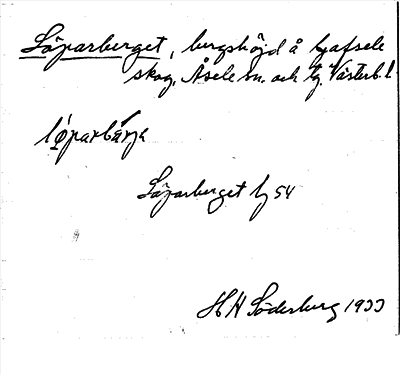 Löparberget, bergshöjd å Gafsele
skog, Åsele sn. och tg. Västerb. l.
löparbärje
Löparberget bg 54
H H Söderberg 1933